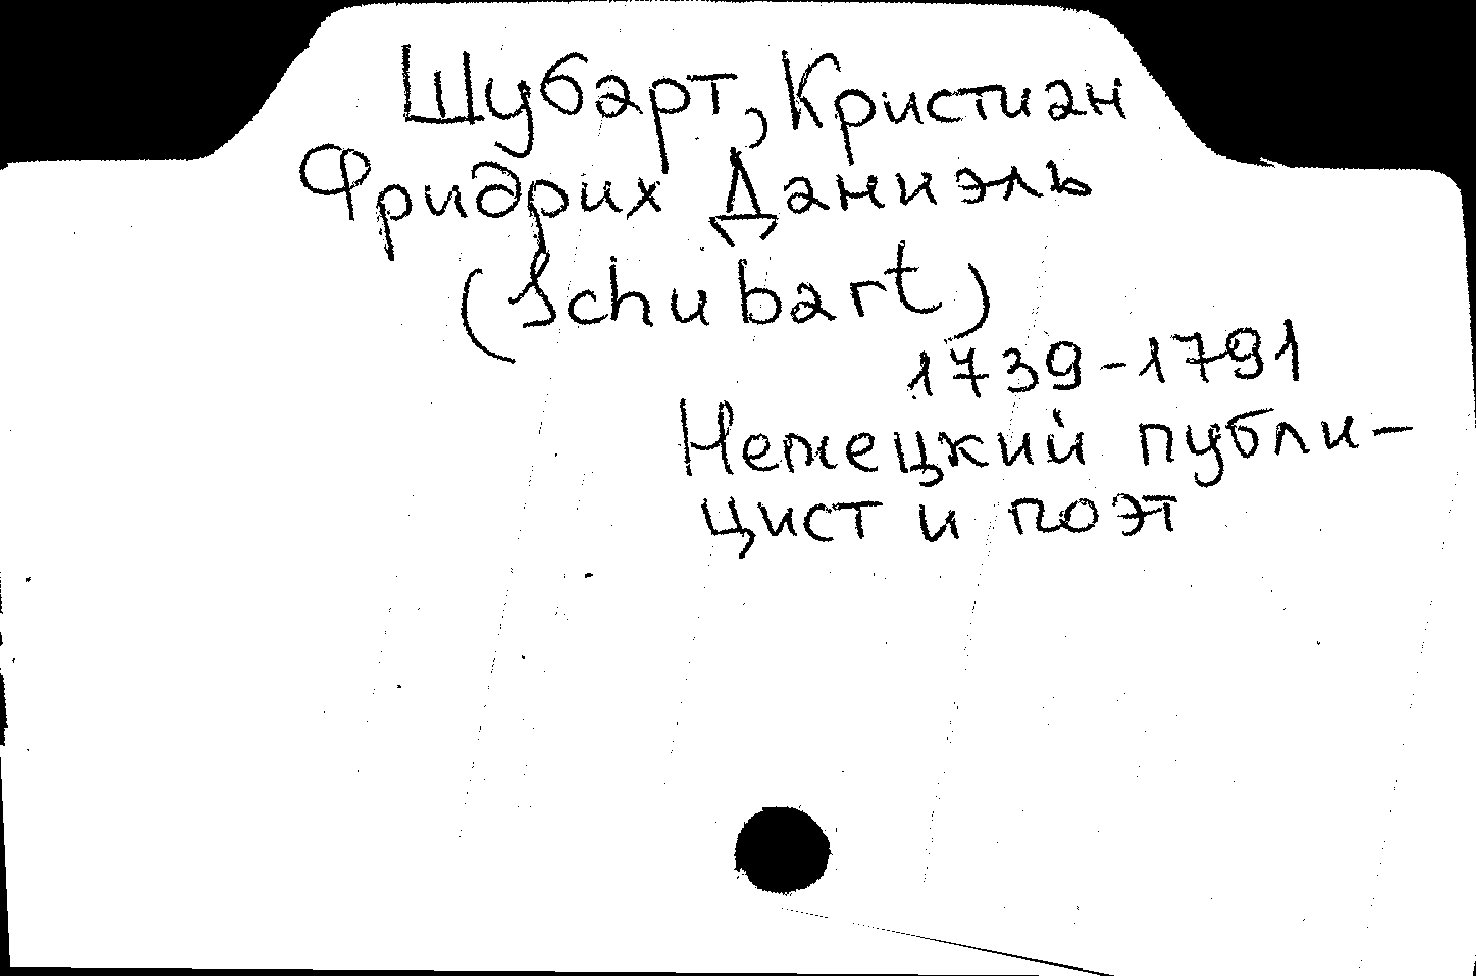 Шубарт, Кристиан
Фридрих Даниэль
(Schubart)
1739-1791
Немецкий публи-
цист и поэт